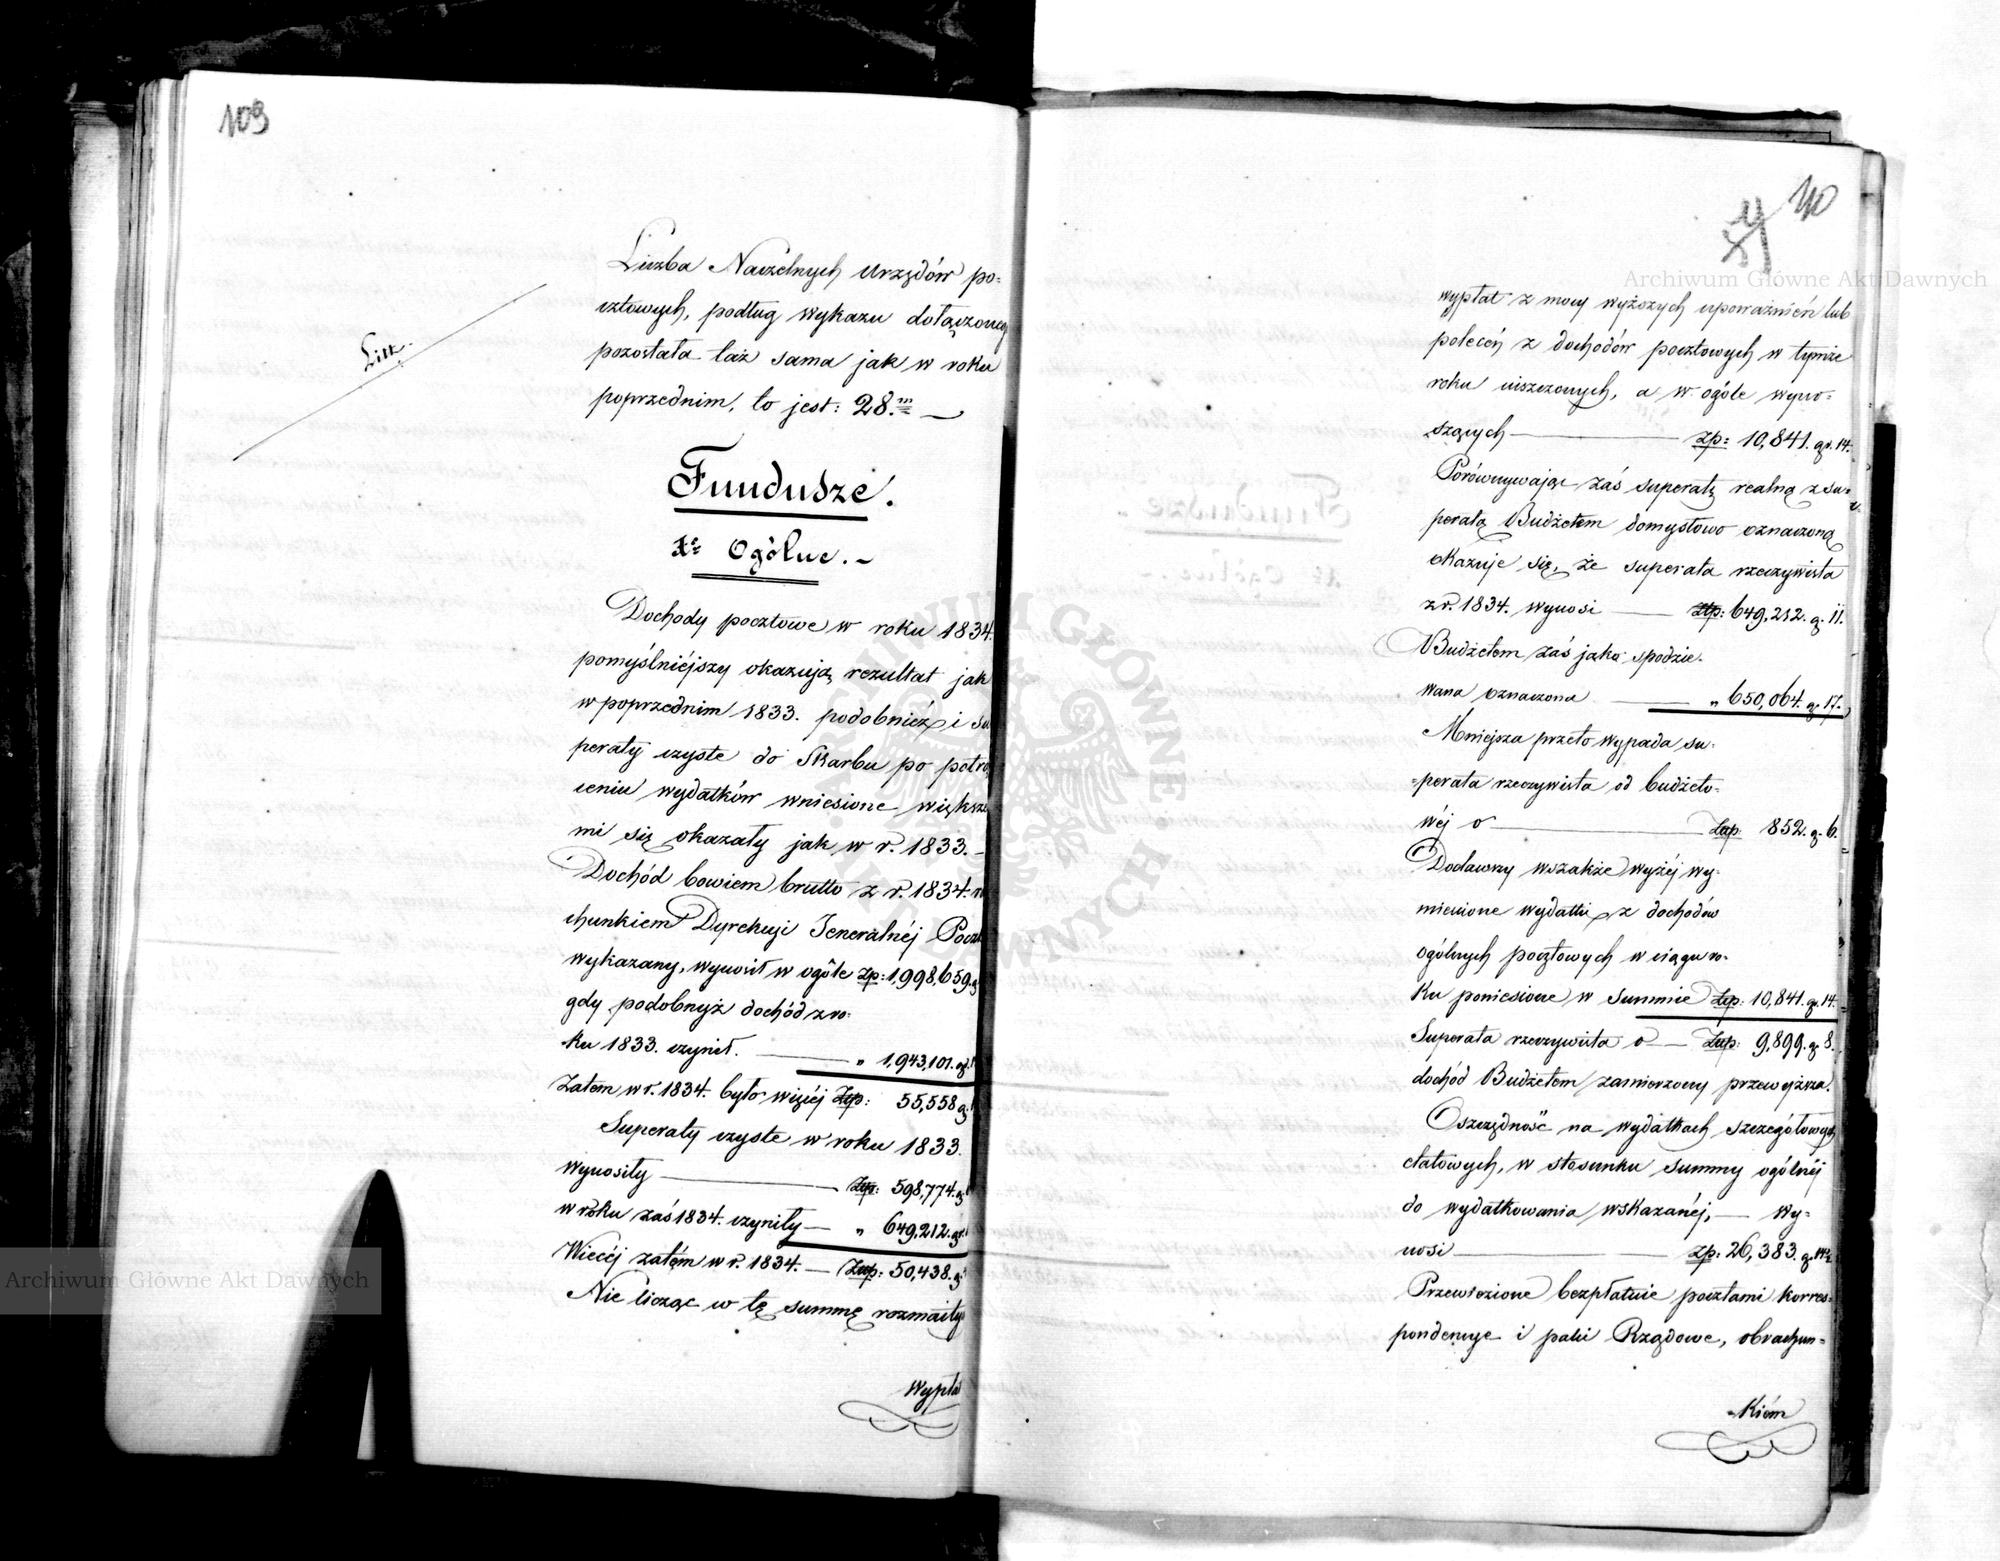 109
Litt.
Liczba Naczelnych Urzędów po=
cztowych, podług wykazu dołączoneg
pozostała taż sama jak w roku
poprzednim, to jest: 28.m —
Fundusze.
Ogólne. —
Dochody pocztowe w roku 1834.
pomyślniéjszy okazują rezultat jak
w poprzednim 1833. podobnież i su
peraty czyste do Skarbu po potrą
ceniu wydatków wniesione większe
mi się okazały jak w r. 1833. —
Dochód bowiem brutto z r. 1834. ra
chunkiem Dyrekcyi Jeneralnéj Poczt
wykazany, wynosił w ogóle zp: 1,998,659. g
gdy podobnyż dochód z ro=
ku 1833. czynił. — „ 1,943,101. gr.
Zatem w r. 1834. było więcéj Złp: 55,558 g.
Superaty czyste w roku 1833.
wynosiły — Złp: 598,774. g
w roku zaś 1834. czyniły — „ 649,212. gr.
Wiecéj zatém w r. 1834. — Złp: 50,438. g.
Nie licząc w tę summę rozmaity
wypła
110
wypłat z mocy wyższych upoważnień lub
poleceń z dochodów pocztowych w tymże
roku uiszczonych, a w ogóle wyno=
szących — zp: 10,841. gr. 14.
Porównywając zaś superatę realną z su=
peratą Budżetem domysłowo oznaczoną
okazuje się, że superata rzeczywista
z r. 1834. wynosi — Złp: 649,212. g. 11.
Budżetem zaś jako spodzie=
wana oznaczona — „ 650,064. g. 17.
Mniejsza przeto wypada su=
=perata rzeczywista od budżeto=
wéj o — Złp: 852. g. 6.
Dodawszy wszakże wyżéj wy=
mienione wydatki z dochodów
ogólnych pocztowych w ciągu ro=
ku poniesione w Summie Złp: 10,841. g. 14.
Superata rzeczywista o — Złp: 9,899. g. 8.
dochód Budżetem zamierzony przewyższa.
Oszczędność na wydatkach szczegółowych
etatowych, w stosunku summy ogólnéj
do wydatkowania wskazanéj, — wy=
nosi — zp: 26,383.
Przewiezione bezpłatnie pocztami korres=
pondencye i paki Rządowe, obrachun=
=kiém
Archiwum Główne Akt Dawnych
Archiwum Główne Akt Dawnych
ARCHIWUM GŁÓWNE AKT DAWNYCH